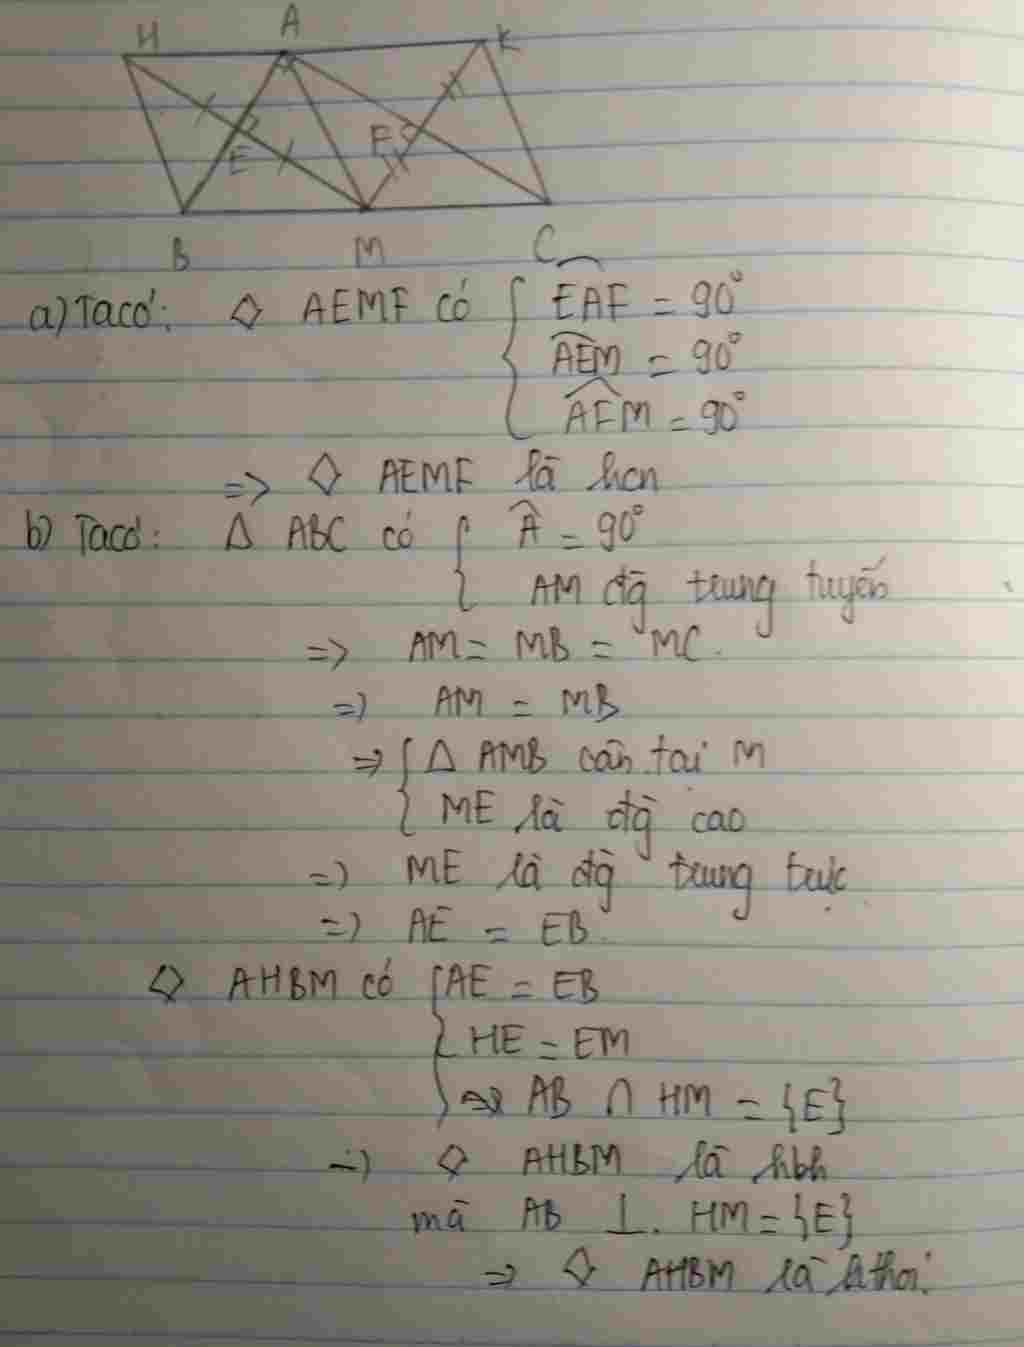 H A K
E F
B M C
a) Ta có: ◇ AEMF có { EAF = 90°
AEM = 90°
AFM = 90°
=> ◇ AEMF là hcn
b) Ta có: Δ ABC có { Â = 90°
AM đg trung tuyến
=> AM = MB = MC.
=> AM = MB
=> { Δ AMB cân tại M
ME là đg cao
=> ME là đg trung trực
=> AE = EB.
◇ AHBM có { AE = EB
HE = EM
AB ∩ HM = {E}
=> ◇ AHBM là hbh
mà AB ⊥ HM = {E}
=> ◇ AHBM là hthoi.